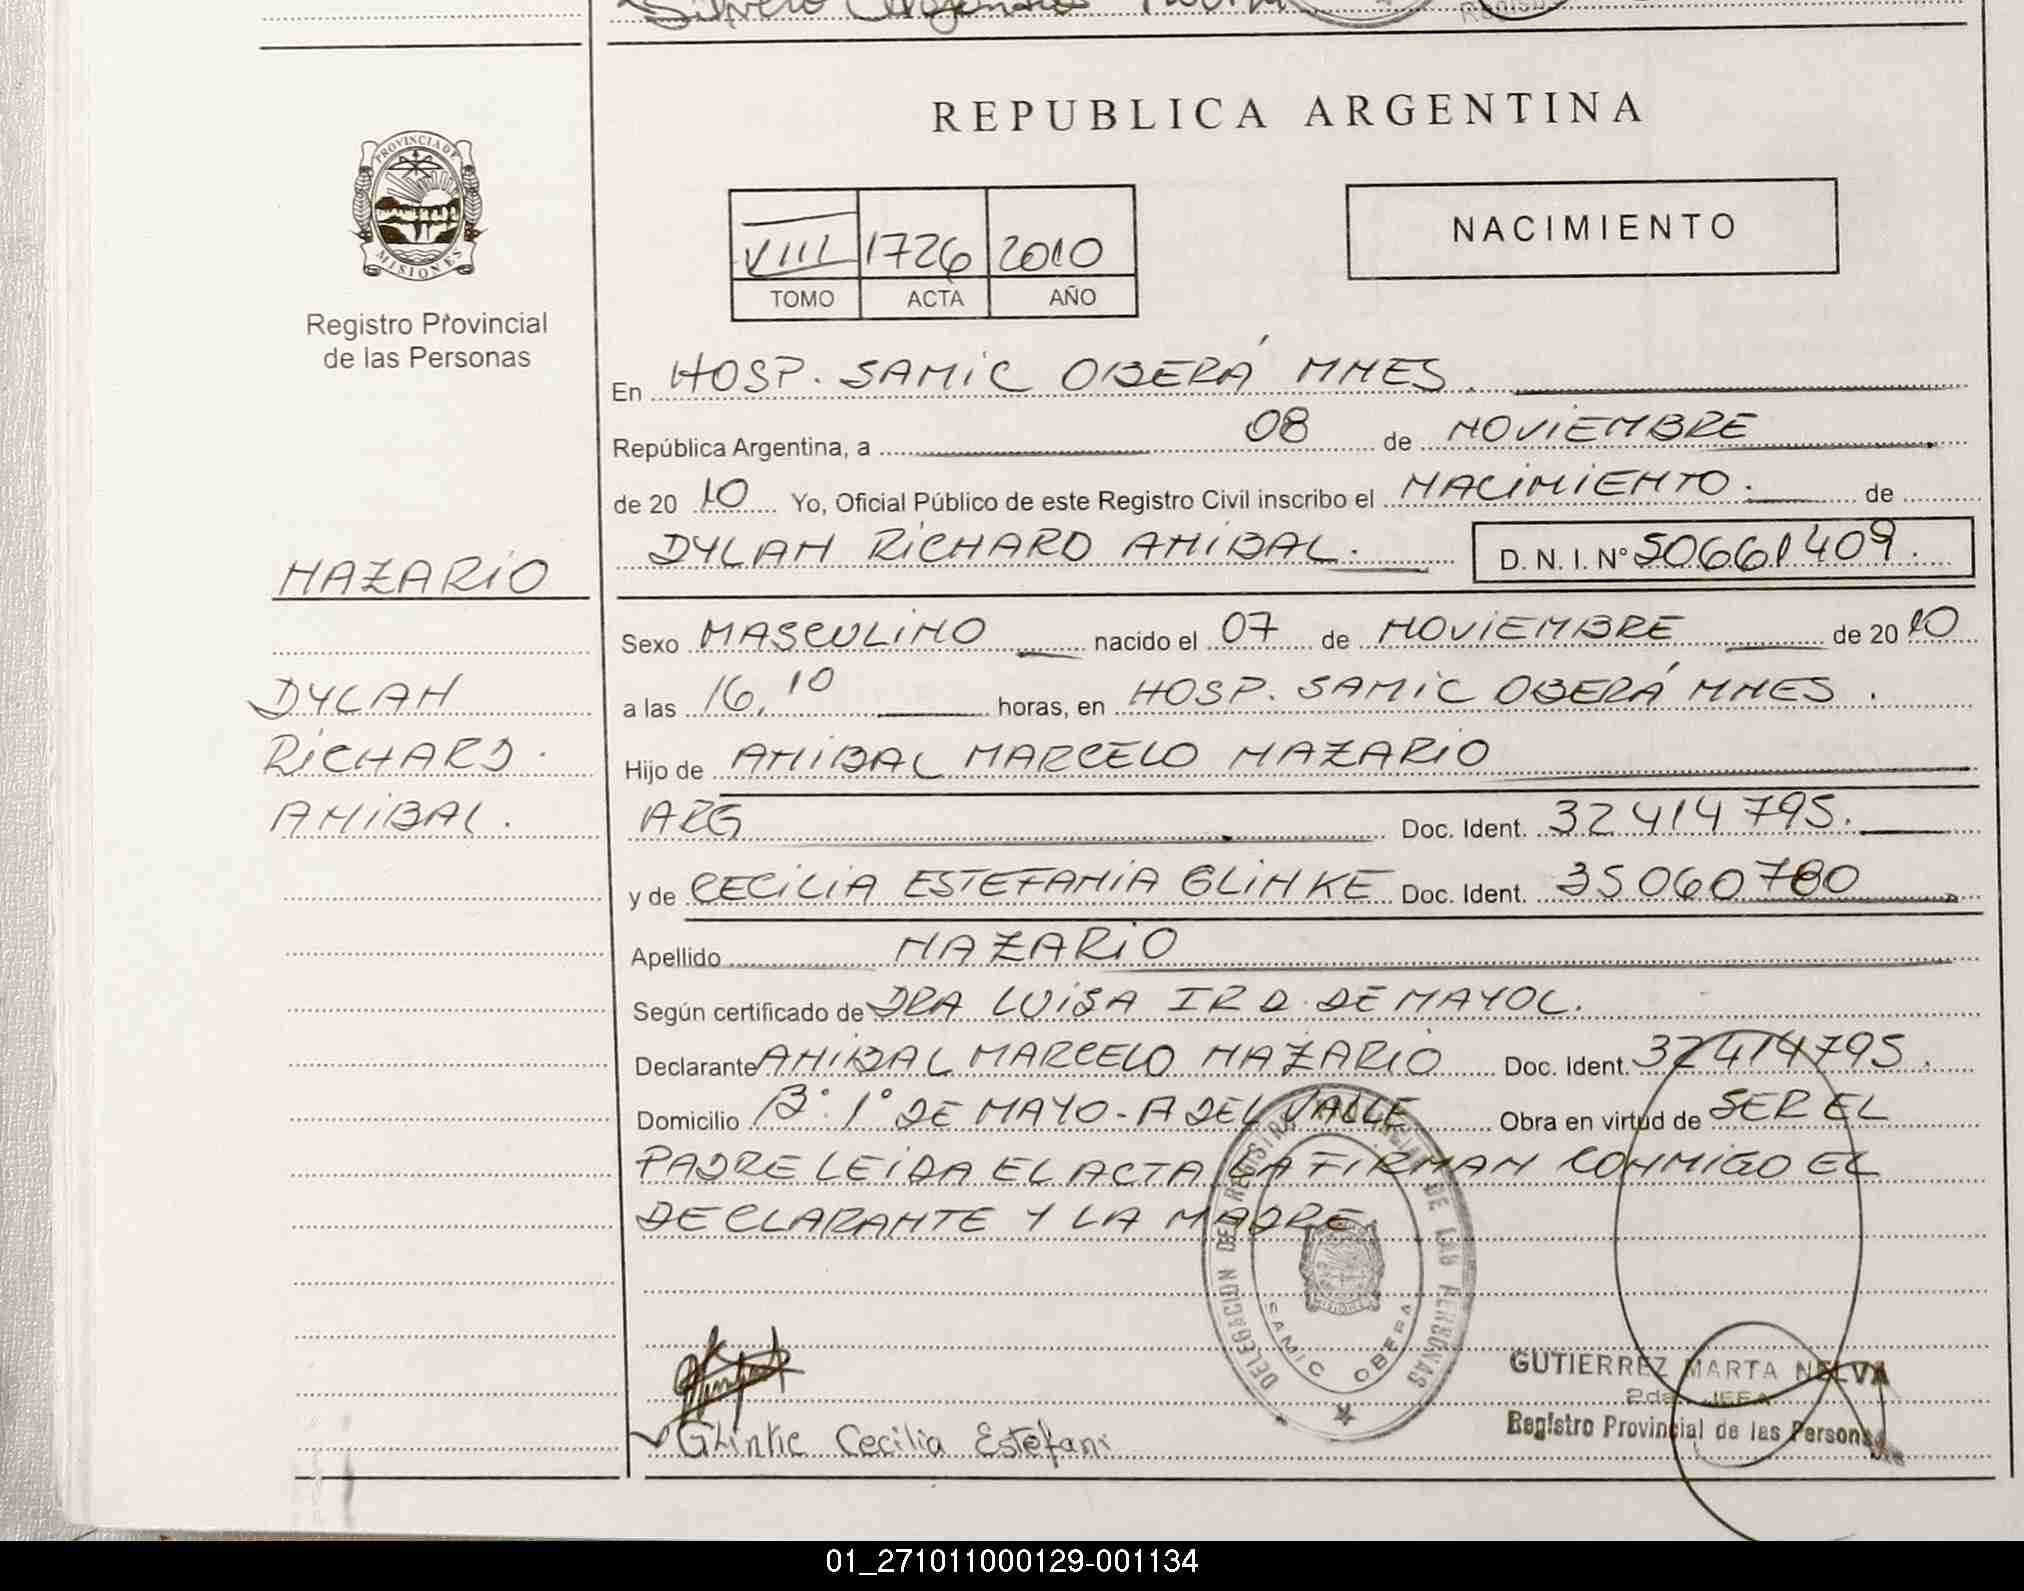 REPUBLICA ARGENTINA
PROVINCIA DE
MISIONES
Registro Provincial
de las Personas
VIII 1726 2010
TOMO ACTA AÑO
NACIMIENTO
En HOSP. SAMIC OBERÁ MNES.
República Argentina, a 08 de NOVIEMBRE
de 20 10 Yo, Oficial Público de este Registro Civil inscribo el NACIMIENTO. de
DYLAN RICHARD ANIBAL. D. N. I. Nº 50661409.
NAZARIO
DYLAN
RICHARD.
ANIBAL.
Sexo MASCULINO nacido el 07 de NOVIEMBRE de 20 10
a las 16,10 horas, en HOSP. SAMIC OBERÁ MNES.
Hijo de ANIBAL MARCELO NAZARIO
ARG Doc. Ident. 32414795.
y de CECILIA ESTEFANIA GLINKE Doc. Ident. 35060780
Apellido NAZARIO
Según certificado de DRA LUISA IR D. DE MAYOL.
Declarante ANIBAL MARCELO NAZARIO Doc. Ident. 32414795.
Domicilio Bº 1º DE MAYO - A DEL VALLE Obra en virtud de SER EL
PADRE LEIDA EL ACTA LA FIRMAN CONMIGO EL
DECLARANTE Y LA MADRE
DELEGACION DEL REGISTRO PROVINCIAL DE LAS PERSONAS
SAMIC OBERA
GUTIERREZ MARTA NELVA
2da JEFA
Registro Provincial de las Personas
Glinke Cecilia Estefani
01_271011000129-001134